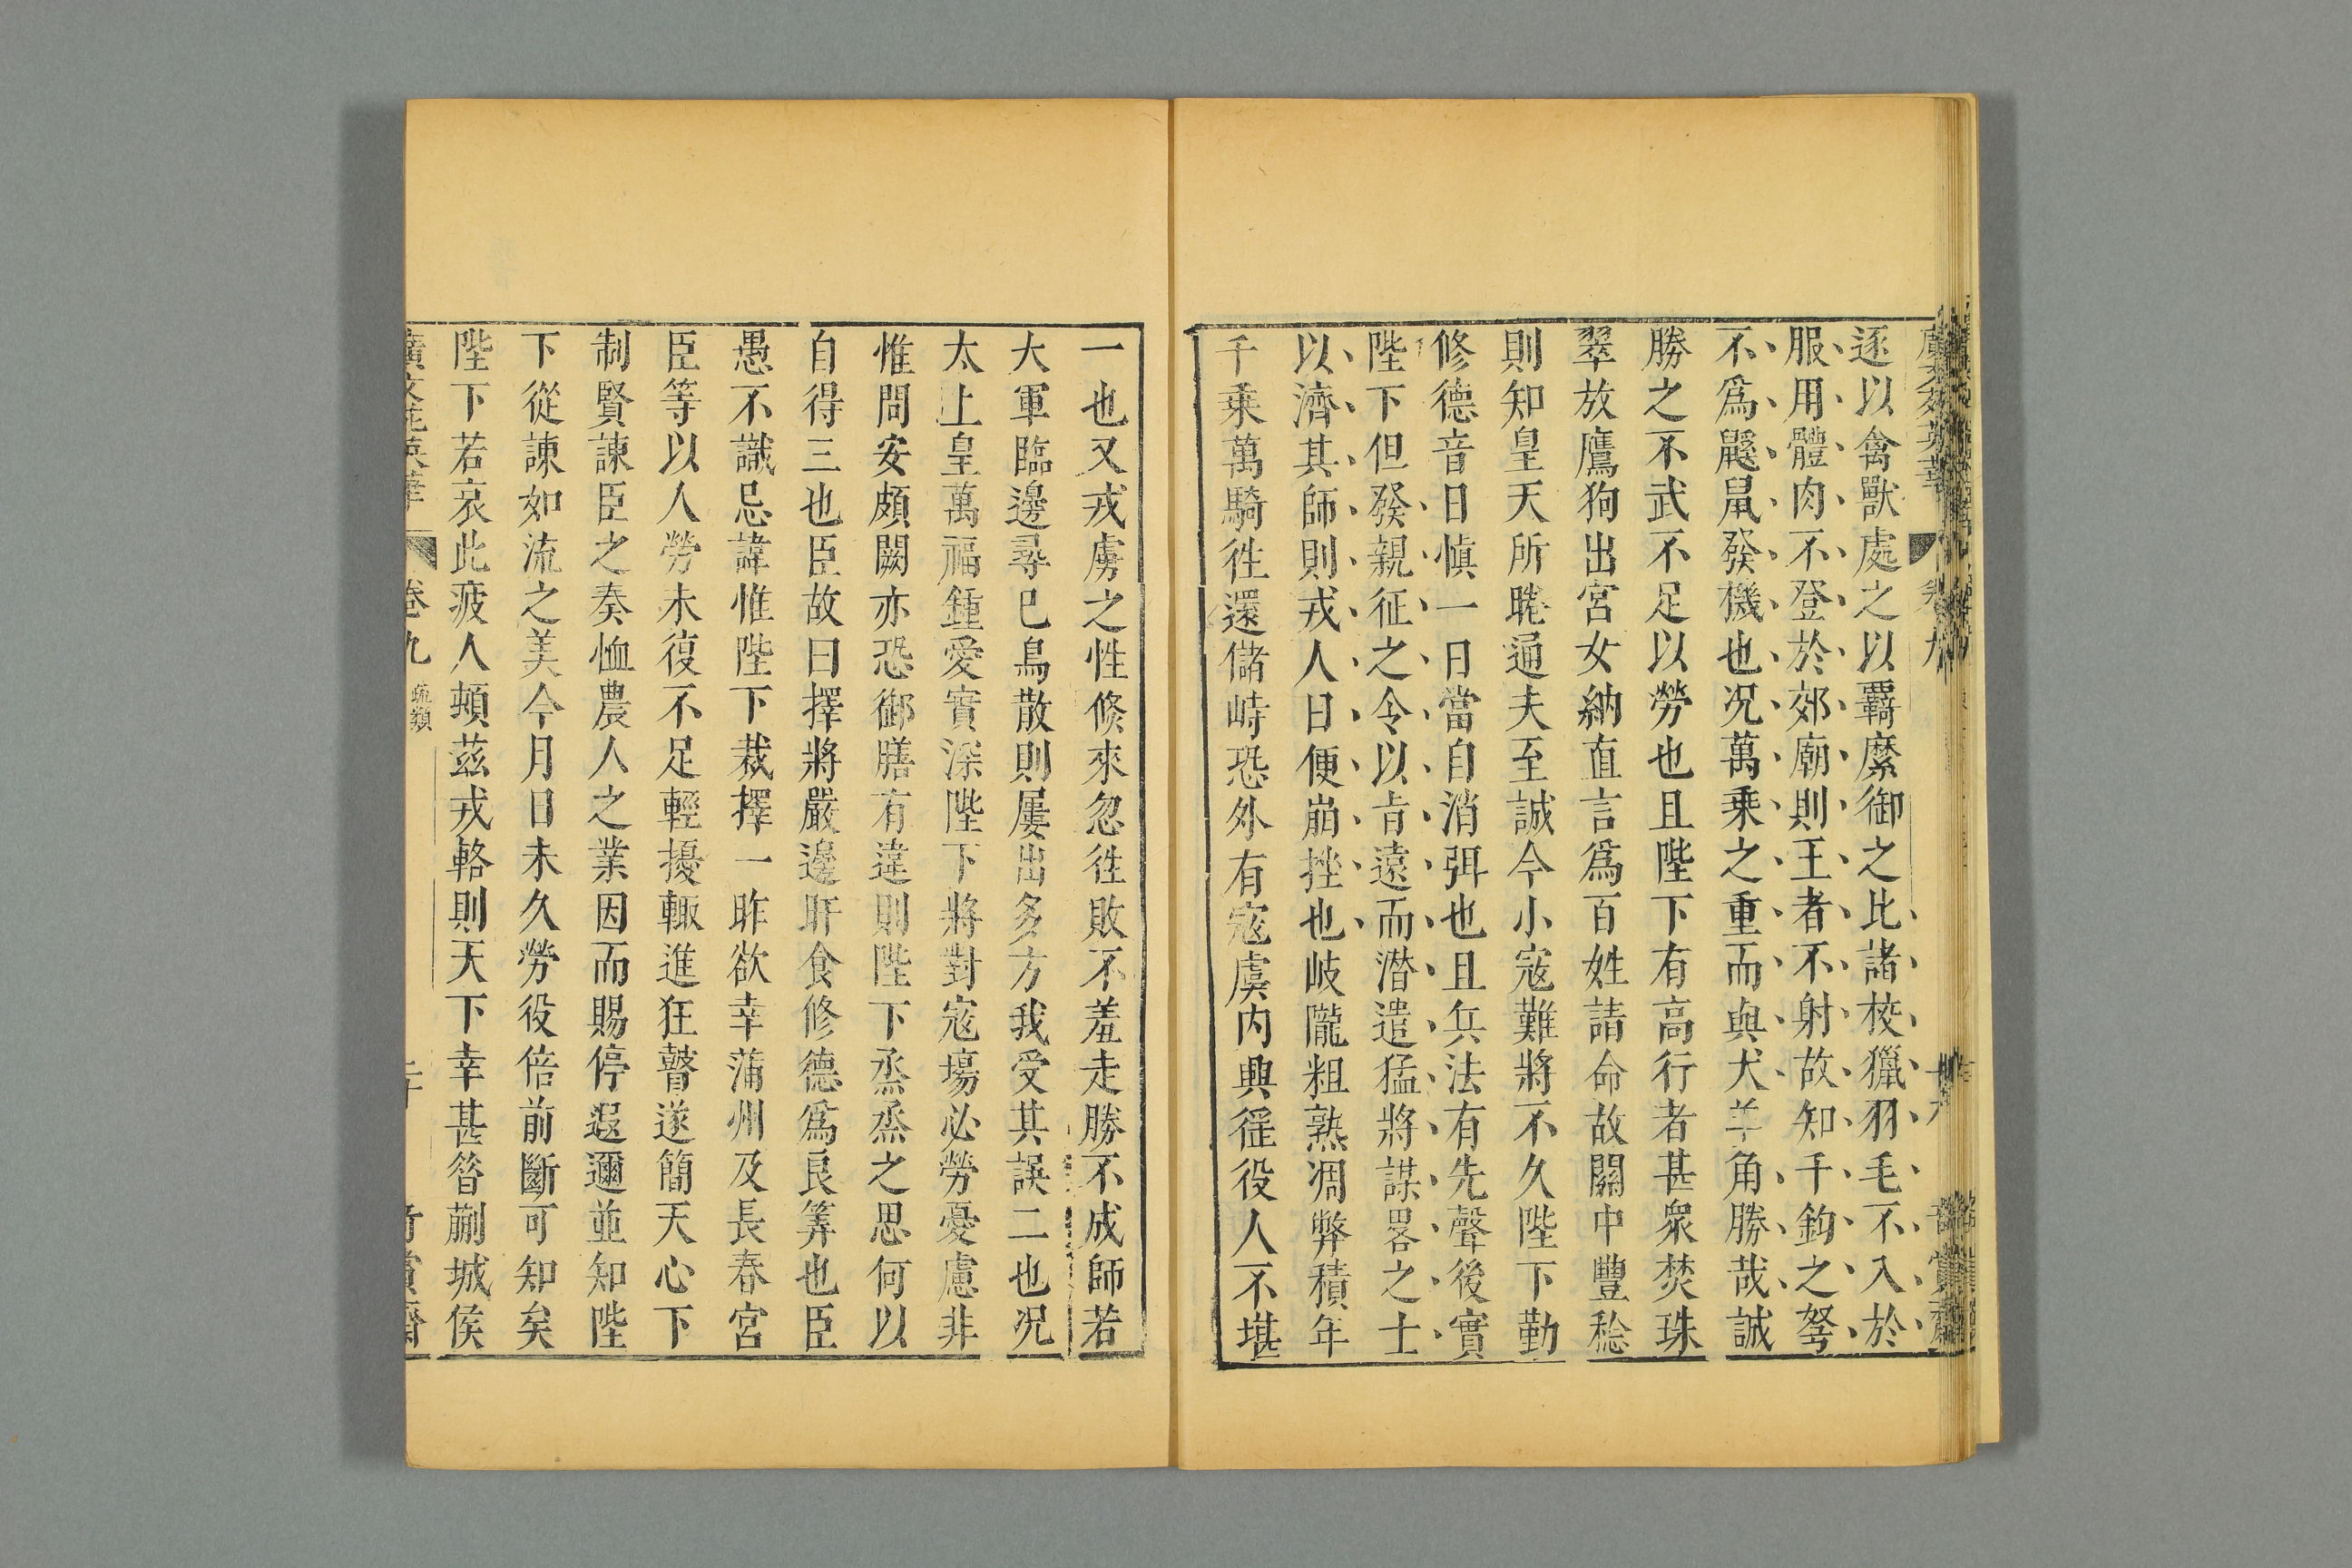 廣文苑英華 卷九
逐以禽獸處之以覊縻御之比諸校獵羽毛不入於
服用體肉不登於郊廟則王者不射故知千鈞之弩
不爲鼷鼠發機也况萬乗之重而與犬羊角勝哉誠
勝之不武不足以勞也且陛下有高行者甚衆焚珠
翠放鷹狗出宮女納直言爲百姓請命故關中豐稔
則知皇天所眷通夫至誠今小寇難將不久陛下勤
修德音日愼一日當自消弭也且兵法有先聲後實
陛下但發親征之令以肯遠而潜遣猛將謀畧之士
以濟其師則戎人日便崩挫也岐隴粗熟凋弊積年
千乗萬騎徃還儲峙恐外有寇虞内興徭役人不堪
一也又戎虜之性倐來忽徃敗不羞走勝不成師若
大軍臨邊尋已鳥散則屢出多方我受其誤二也况
太上皇萬福鍾愛實深陛下將對寇場必勞憂慮非
惟問安頗闕亦恐御膳有違則陛下烝烝之思何以
自得三也臣故曰擇將嚴邊旰食修德爲良筭也臣
愚不識忌諱惟陛下裁擇一昨欲幸蒲州及長春宮
臣等以人勞未復不足輕擾輙進狂瞽遂簡天心下
制賢諫臣之奏恤農人之業因而賜停遐邇並知陛
下從諫如流之美今月日未久勞役倍前斷可知矣
陛下若哀此疲人頓兹戎輅則天下幸甚昝蒯城侯
廣文苑英華 卷九 疏類